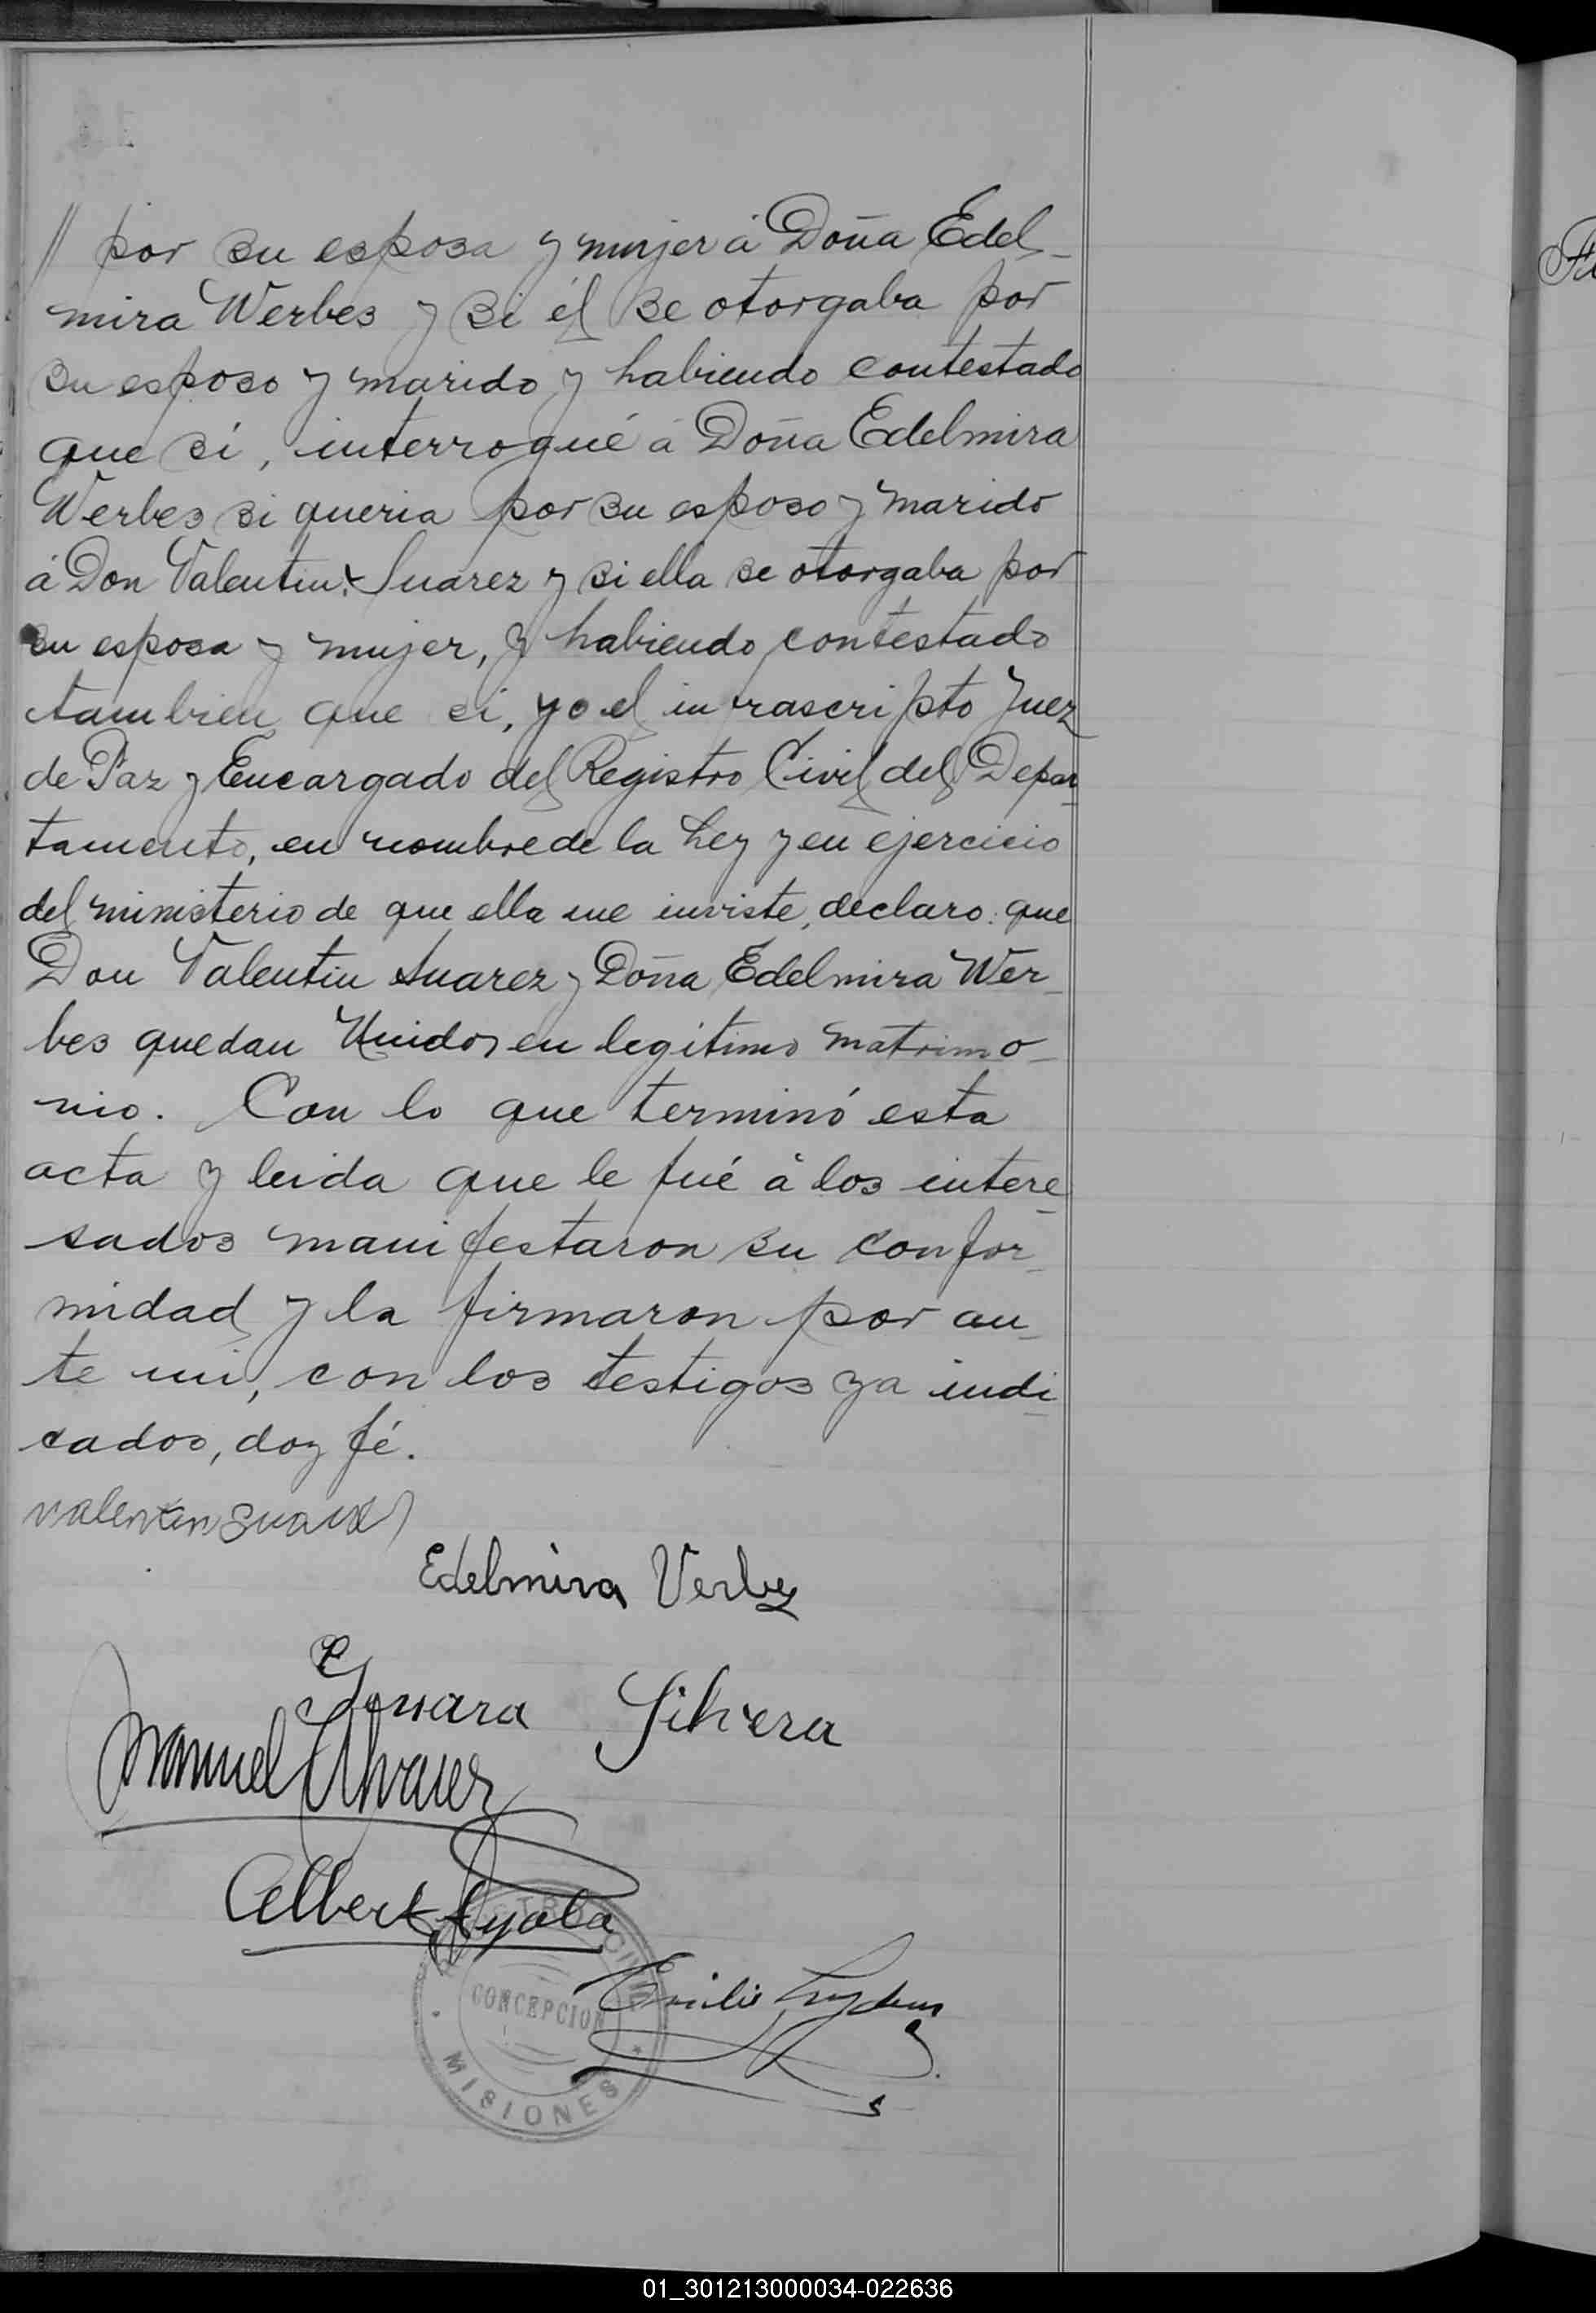 // por su esposa y mujer á Doña Edel-
mira Werbes y si él se otorgaba por
su esposo y marido y habiendo contestado
que sí, interrogué á Doña Edelmira
Werbes si queria por su esposo y marido
á Don Valentin Suarez y si ella se otorgaba por
su esposa y mujer, y habiendo contestado
tambien que si, yo el infrascripto Juez
de Paz y Encargado del Registro Civil del Depar-
tamento, en nombre de la Ley y en ejercicio
del ministerio de que ella me inviste, declaro: que
Don Valentin Suarez y Doña Edelmira Wer-
bes quedan Unidos en legítimo matrimo-
nio. Con lo que terminó esta
acta y leida que le fué á los intere-
sados manifestaron su confor-
midad y la firmaron por an-
te mi, con los testigos ya indi-
cados, doy fé.
Valentin Suarez
Edelmira Verbes
Silvera
Manuel Alvarez
Albert Ayala
Emilio
REGISTRO CIVIL
CONCEPCION
MISIONES
01_301213000034-022636